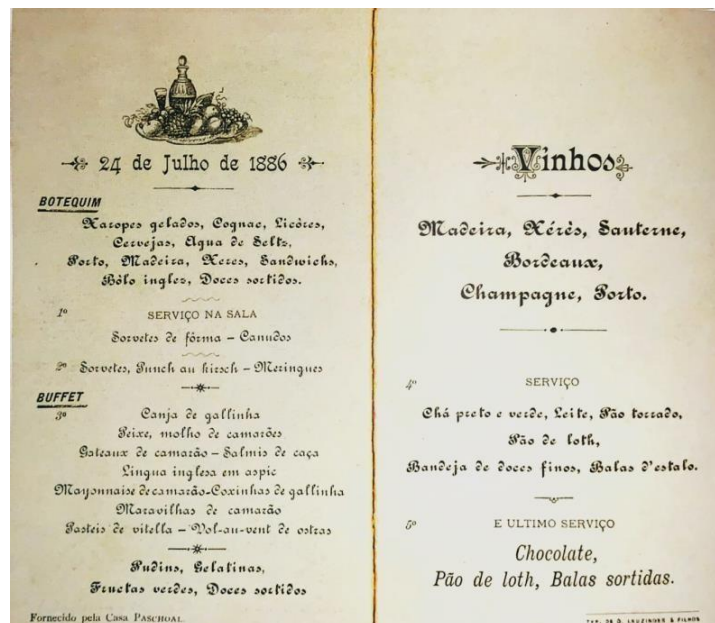 24 de Julho de 1886
BOTEQUIM
Xaropes gelados, Cognac, Licôres,
Cervejas, Agua de Seltz,
Porto, Madeira, Xeres, Sandwichs,
Bôlo inglez, Doces sortidos.
1º SERVIÇO NA SALA
Sorvetes de fôrma – Canudos
2º Sorvetes, Punch au kirsch – Meringues
BUFFET
3º Canja de gallinha
Peixe, molho de camarões
Gateaux de camarão – Salmis de caça
Lingua inglesa em aspic
Mayonnaise de camarão-Coxinhas de gallinha
Maravilhas de camarão
Pasteis de vitella – Vol-au-vent de ostras
Pudins, Gelatinas,
Fructas verdes, Doces sortidos
Fornecido pela Casa PASCHOAL
Vinhos
Madeira, Xérès, Sauterne,
Bordeaux,
Champagne, Porto.
4º SERVIÇO
Chá preto e verde, Leite, Pão torrado,
Pão de loth,
Bandeja de doces finos, Balas d'estalo.
5º E ULTIMO SERVIÇO
Chocolate,
Pão de loth, Balas sortidas.
TYP. DE G. LEUZINGER & FILHOS